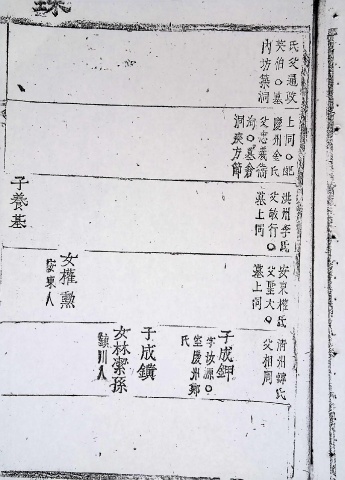 氏父通政
英伯○墓
內坊築洞
上同○配
慶州金氏
父忠義衛
○墓倉
洞癸方節
洪州李氏
父敏行○
墓上同
子養基
安東權氏
父聖大○
墓上同
女權勲
安東人
清州韓氏
父相周
子成鉀
字汝源○
室慶州鄭
氏
子成鐄
女林潔孫
鎮川人